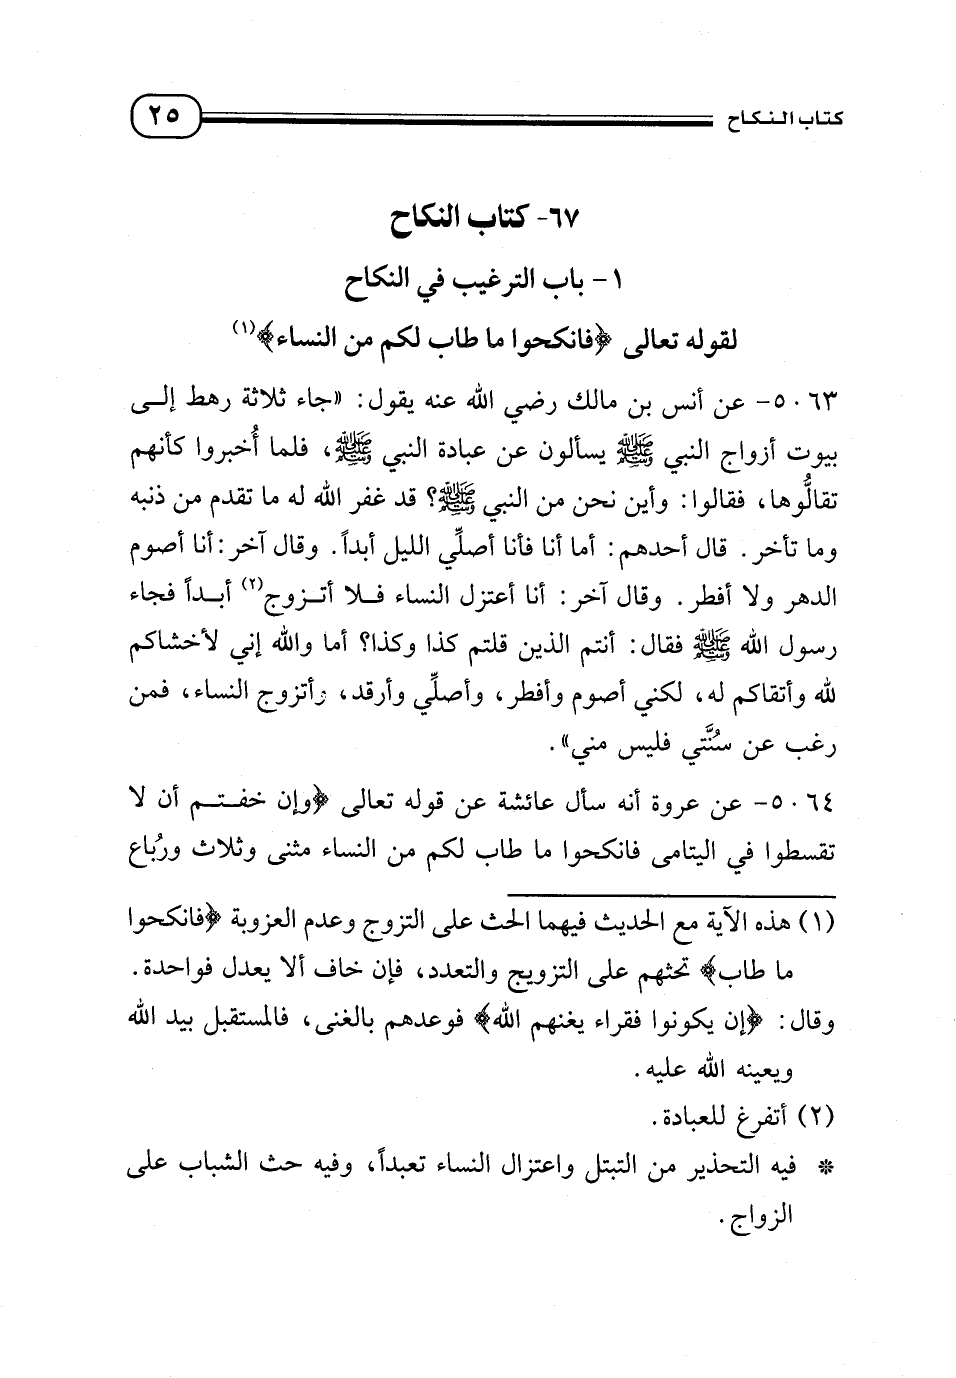 كتاب النكاح ٢٥
٦٧- كتاب النكاح
١- باب الترغيب في النكاح
لقوله تعالى ﴿فانكحوا ما طاب لكم من النساء﴾(١)
٥٠٦٣- عن أنس بن مالك رضي الله عنه يقول: «جاء ثلاثة رهط إلى
بيوت أزواج النبي ﷺ يسألون عن عبادة النبي ﷺ، فلما أُخبروا كأنهم
تقالُّوها، فقالوا: وأين نحن من النبي ﷺ؟ قد غفر الله له ما تقدم من ذنبه
وما تأخر. قال أحدهم: أما أنا فأنا أصلِّي الليل أبداً. وقال آخر: أنا أصوم
الدهر ولا أفطر. وقال آخر: أنا أعتزل النساء فلا أتزوج(٢) أبداً فجاء
رسول الله ﷺ فقال: أنتم الذين قلتم كذا وكذا؟ أما والله إني لأخشاكم
لله وأتقاكم له، لكني أصوم وأفطر، وأصلِّي وأرقد، وأتزوج النساء، فمن
رغب عن سُنَّتي فليس مني».
٥٠٦٤- عن عروة أنه سأل عائشة عن قوله تعالى ﴿وإن خفتم أن لا
تقسطوا في اليتامى فانكحوا ما طاب لكم من النساء مثنى وثلاث ورُباع
(١) هذه الآية مع الحديث فيهما الحث على التزوج وعدم العزوبة ﴿فانكحوا
ما طاب﴾ تحثهم على التزويج والتعدد، فإن خاف ألا يعدل فواحدة.
وقال: ﴿إن يكونوا فقراء يغنهم الله﴾ فوعدهم بالغنى، فالمستقبل بيد الله
ويعينه الله عليه.
(٢) أتفرغ للعبادة.
* فيه التحذير من التبتل واعتزال النساء تعبداً، وفيه حث الشباب على
الزواج.